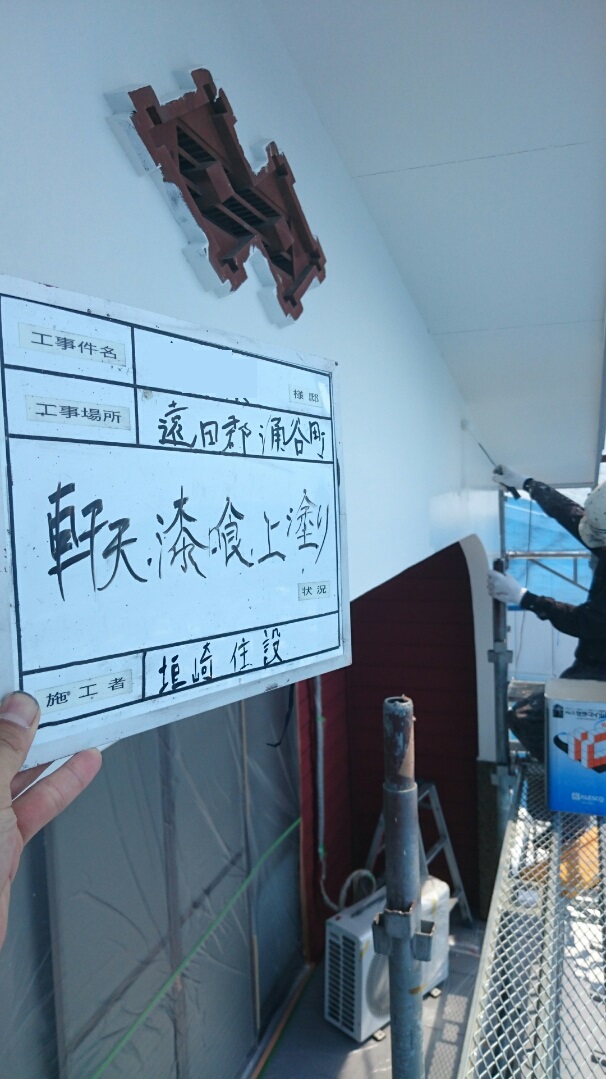 工事件名
様邸
工事場所
遠田郡涌谷町
軒天、漆喰上塗り
状況
施工者
垣崎住設